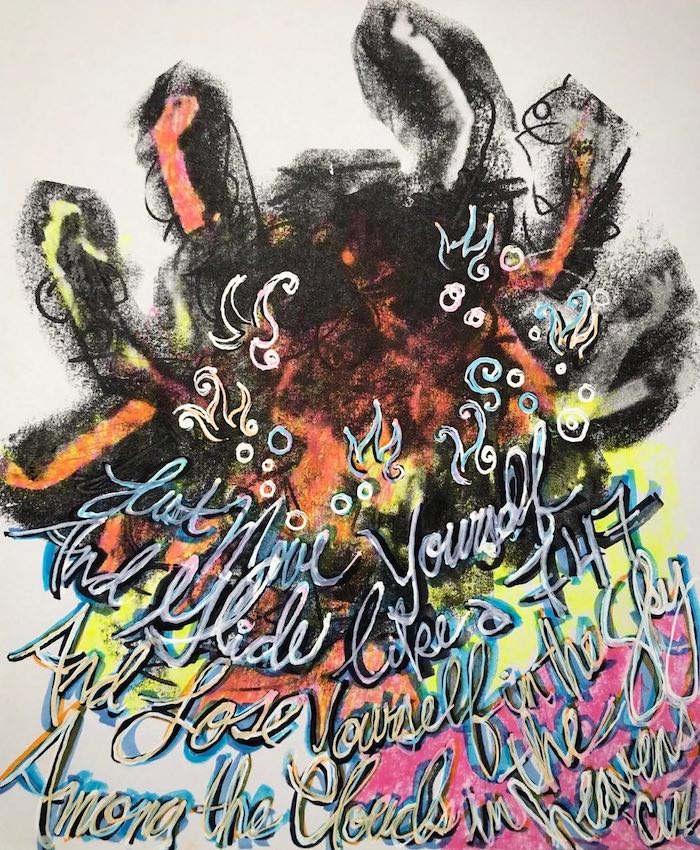 Just Move Yourself
And Glide like a 747
And Lose Yourself in the Sky
Among the Clouds in the heavens